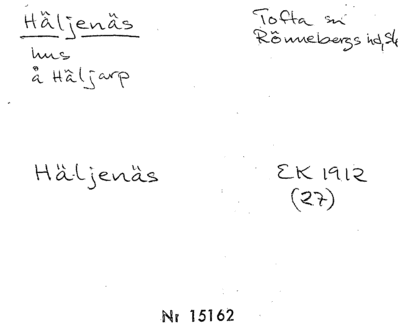 Häljenäs
hus
å Häljarp
Tofta sn
Rönnebergs hd, Sk
Häljenäs
EK 1912
(27)
Nr 15162